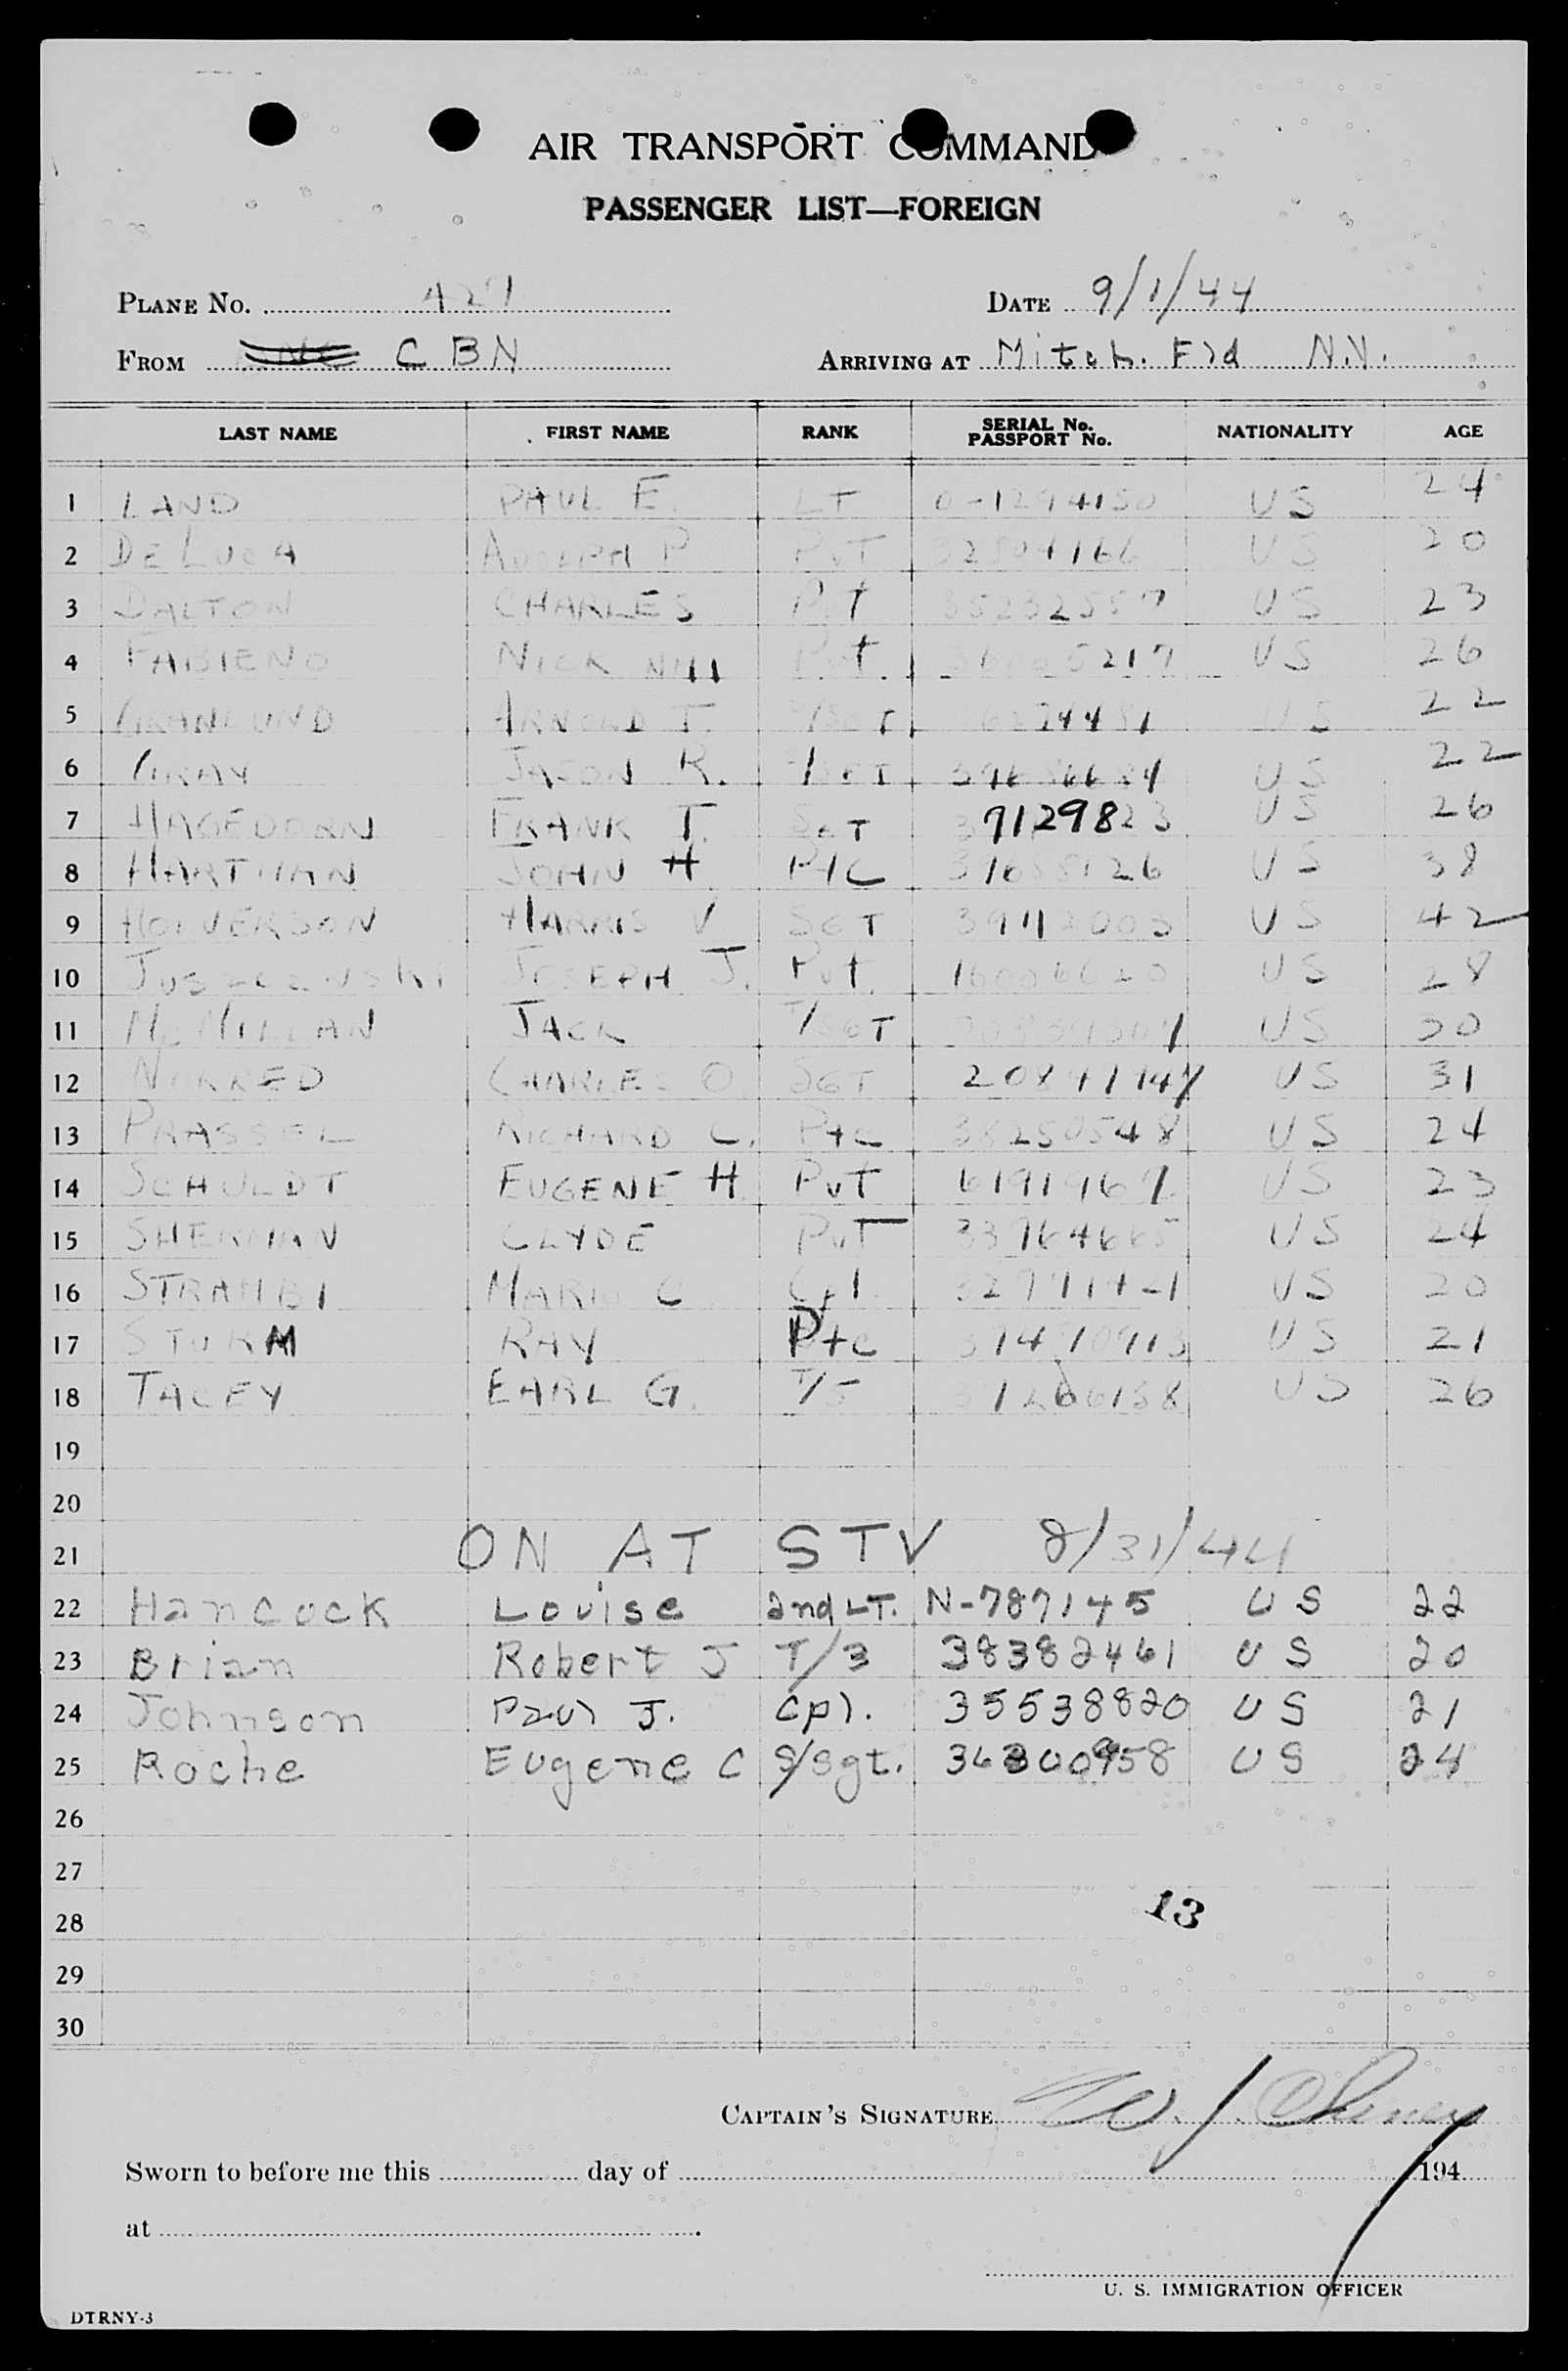 AIR TRANSPORT COMMAND
PASSENGER LIST—FOREIGN
PLANE No. 427 DATE 9/1/44
FROM CBN ARRIVING AT Mitch. Fld N.Y.
LAST NAME FIRST NAME RANK SERIAL No. PASSPORT No. NATIONALITY AGE
1 LAND PAUL E. LT O-1294150 US 24
2 DELUCA ADOLPH P PVT 32804166 US 20
3 DALTON CHARLES PVT 35232557 US 23
4 FABIENO NICK NMI PVT US 26
5 GRANLUND ARNOLD T. US 22
6 GRAY JASON R. US 22
7 HAGEDORN FRANK T. SGT 39129823 US 26
8 HARTMAN JOHN H PFC US 38
9 HOLVERSON HARRIS V SGT US 42
10 JOSEPH J. PVT. US 28
11 McMILLAN JACK T/SGT US 30
12 NORRED CHARLES O SGT US 31
13 PRASSEL RICHARD C. Pfc 38250548 US 24
14 SCHULDT EUGENE H. PVT US 23
15 SHERMAN CLYDE PVT 33764665 US 24
16 STRAMBI MARIO C Cpl US 20
17 STURM RAY Pfc US 21
18 TACEY EARL G. T/5 US 26
19
20
21 ON AT STV 8/31/44
22 Hancock Louise 2nd LT. N-787145 US 22
23 Brian Robert J T/3 38382461 US 20
24 Johnson Paul J. Cpl. 35538820 US 21
25 Roche Eugene C S/Sgt. US 24
26
27
28
13
29
30
CAPTAIN'S SIGNATURE W. J.
Sworn to before me this day of 194
at .
U. S. IMMIGRATION OFFICER
DTRNY-3